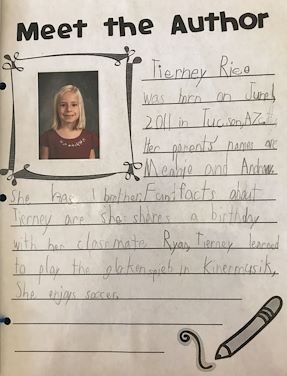 Meet the Author
Tierney Rice
was born on June 1,
2011 in Tucson, AZ.
Her parents' names are
and Andrew.
She has 1 brother. Fun facts about
Tierney are she shares a birthday
with her classmate Ryan, Tierney learned
to play the glokenspieb in Kinermusik,
She enjoys soccer.